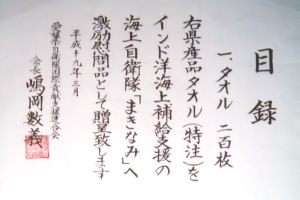 目録
一、タオル 二百枚
右県産品タオル(特注)を
インド洋海上補給支援の
海上自衛隊「まきなみ」へ
激励慰問品として贈呈致します
平成十九年三月
会長 嶋岡数義